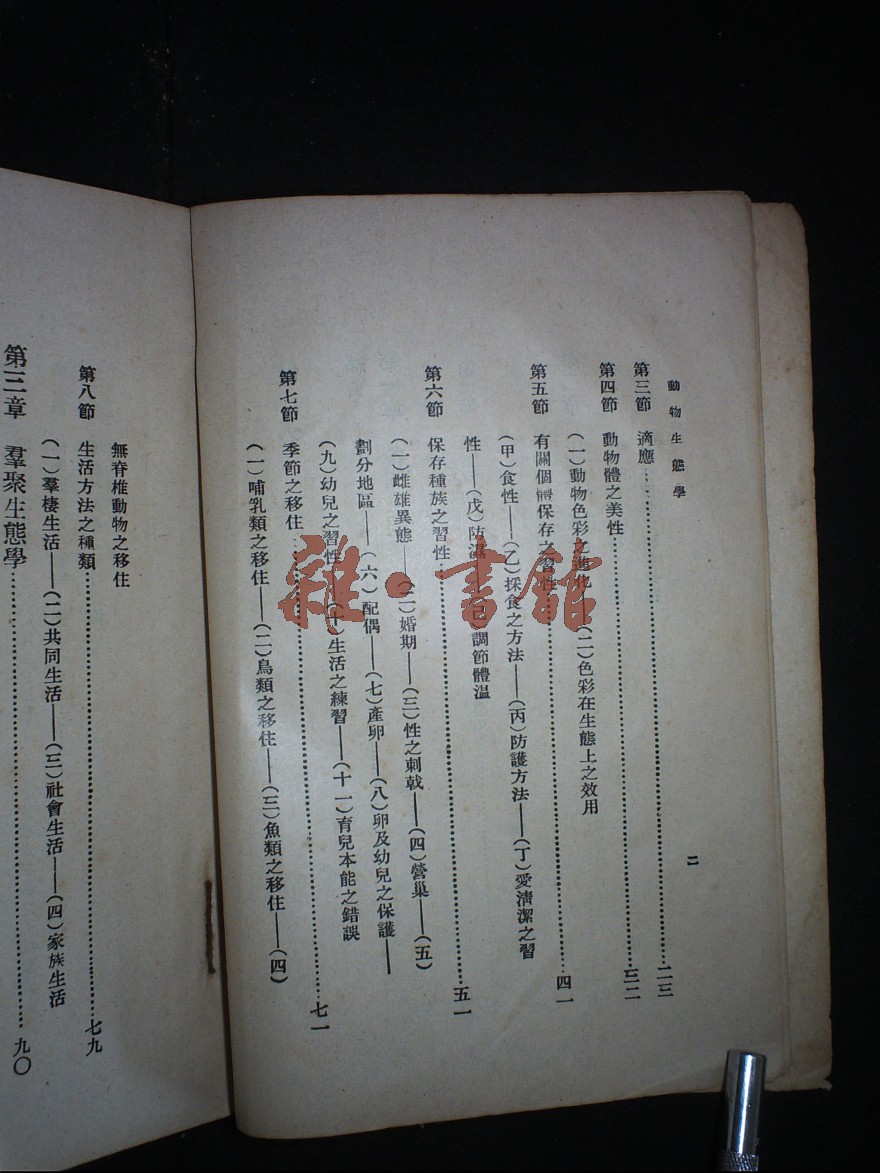 動物生態學
二
第三節 適應……二三
第四節 動物體之美性……三二
(一)動物色彩之進化——(二)色彩在生態上之效用
第五節 有關個體保存之習性……四一
(甲)食性——(乙)採食之方法——(丙)防護方法——(丁)愛清潔之習
性——(戊)防濕——(己)調節體温
第六節 保存種族之習性……五一
(一)雌雄異態——(二)婚期——(三)性之刺戟——(四)營巢——(五)
劃分地區——(六)配偶——(七)產卵——(八)卵及幼兒之保護——
(九)幼兒之習性——(十)生活之練習——(十一)育兒本能之錯誤
第七節 季節之移住……七一
(一)哺乳類之移住——(二)鳥類之移住——(三)魚類之移住——(四)
無脊椎動物之移住
第八節 生活方法之種類……七九
(一)羣棲生活——(二)共同生活——(三)社會生活——(四)家族生活
第三章 羣聚生態學……九〇
雜·書館